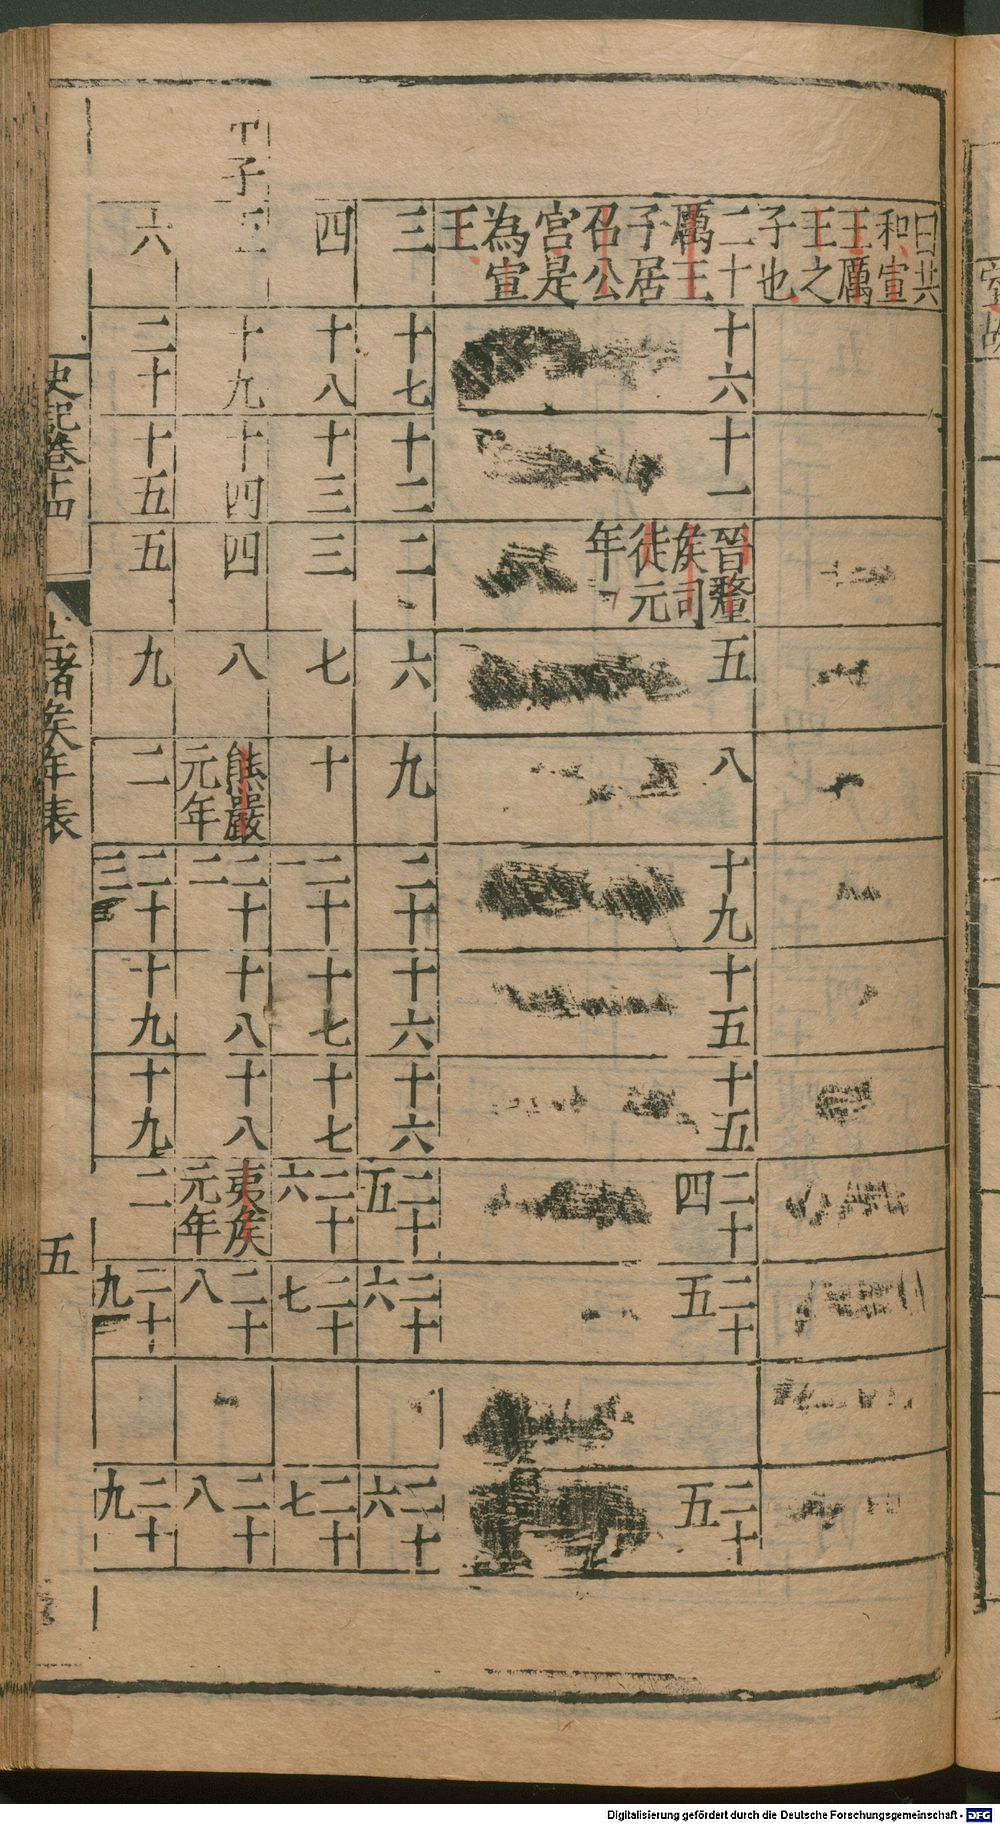 曰共
和宣
王厲
王之
子也
二十
厲王
子居
召公
宮是
為宣
王
十六
十一
晉釐
侯司
徒元
年
五
八
十九
十五
十五
二十四
二十五
二十五
三
十七
十二
二
六
九
二十
十六
十六
二十五
二十六
二十六
四
十八
十三
三
七
十
二十一
十七
十七
二十六
二十七
二十七
甲子
十九
十四
四
八
熊嚴
元年
二十二
十八
十八
夷侯
元年
二十八
二十八
六
二十
十五
五
九
二
二十三
十九
十九
二
二十九
二十九
史記卷十四
諸侯年表
五
Digitalisierung gefördert durch die Deutsche Forschungsgemeinschaft - DFG